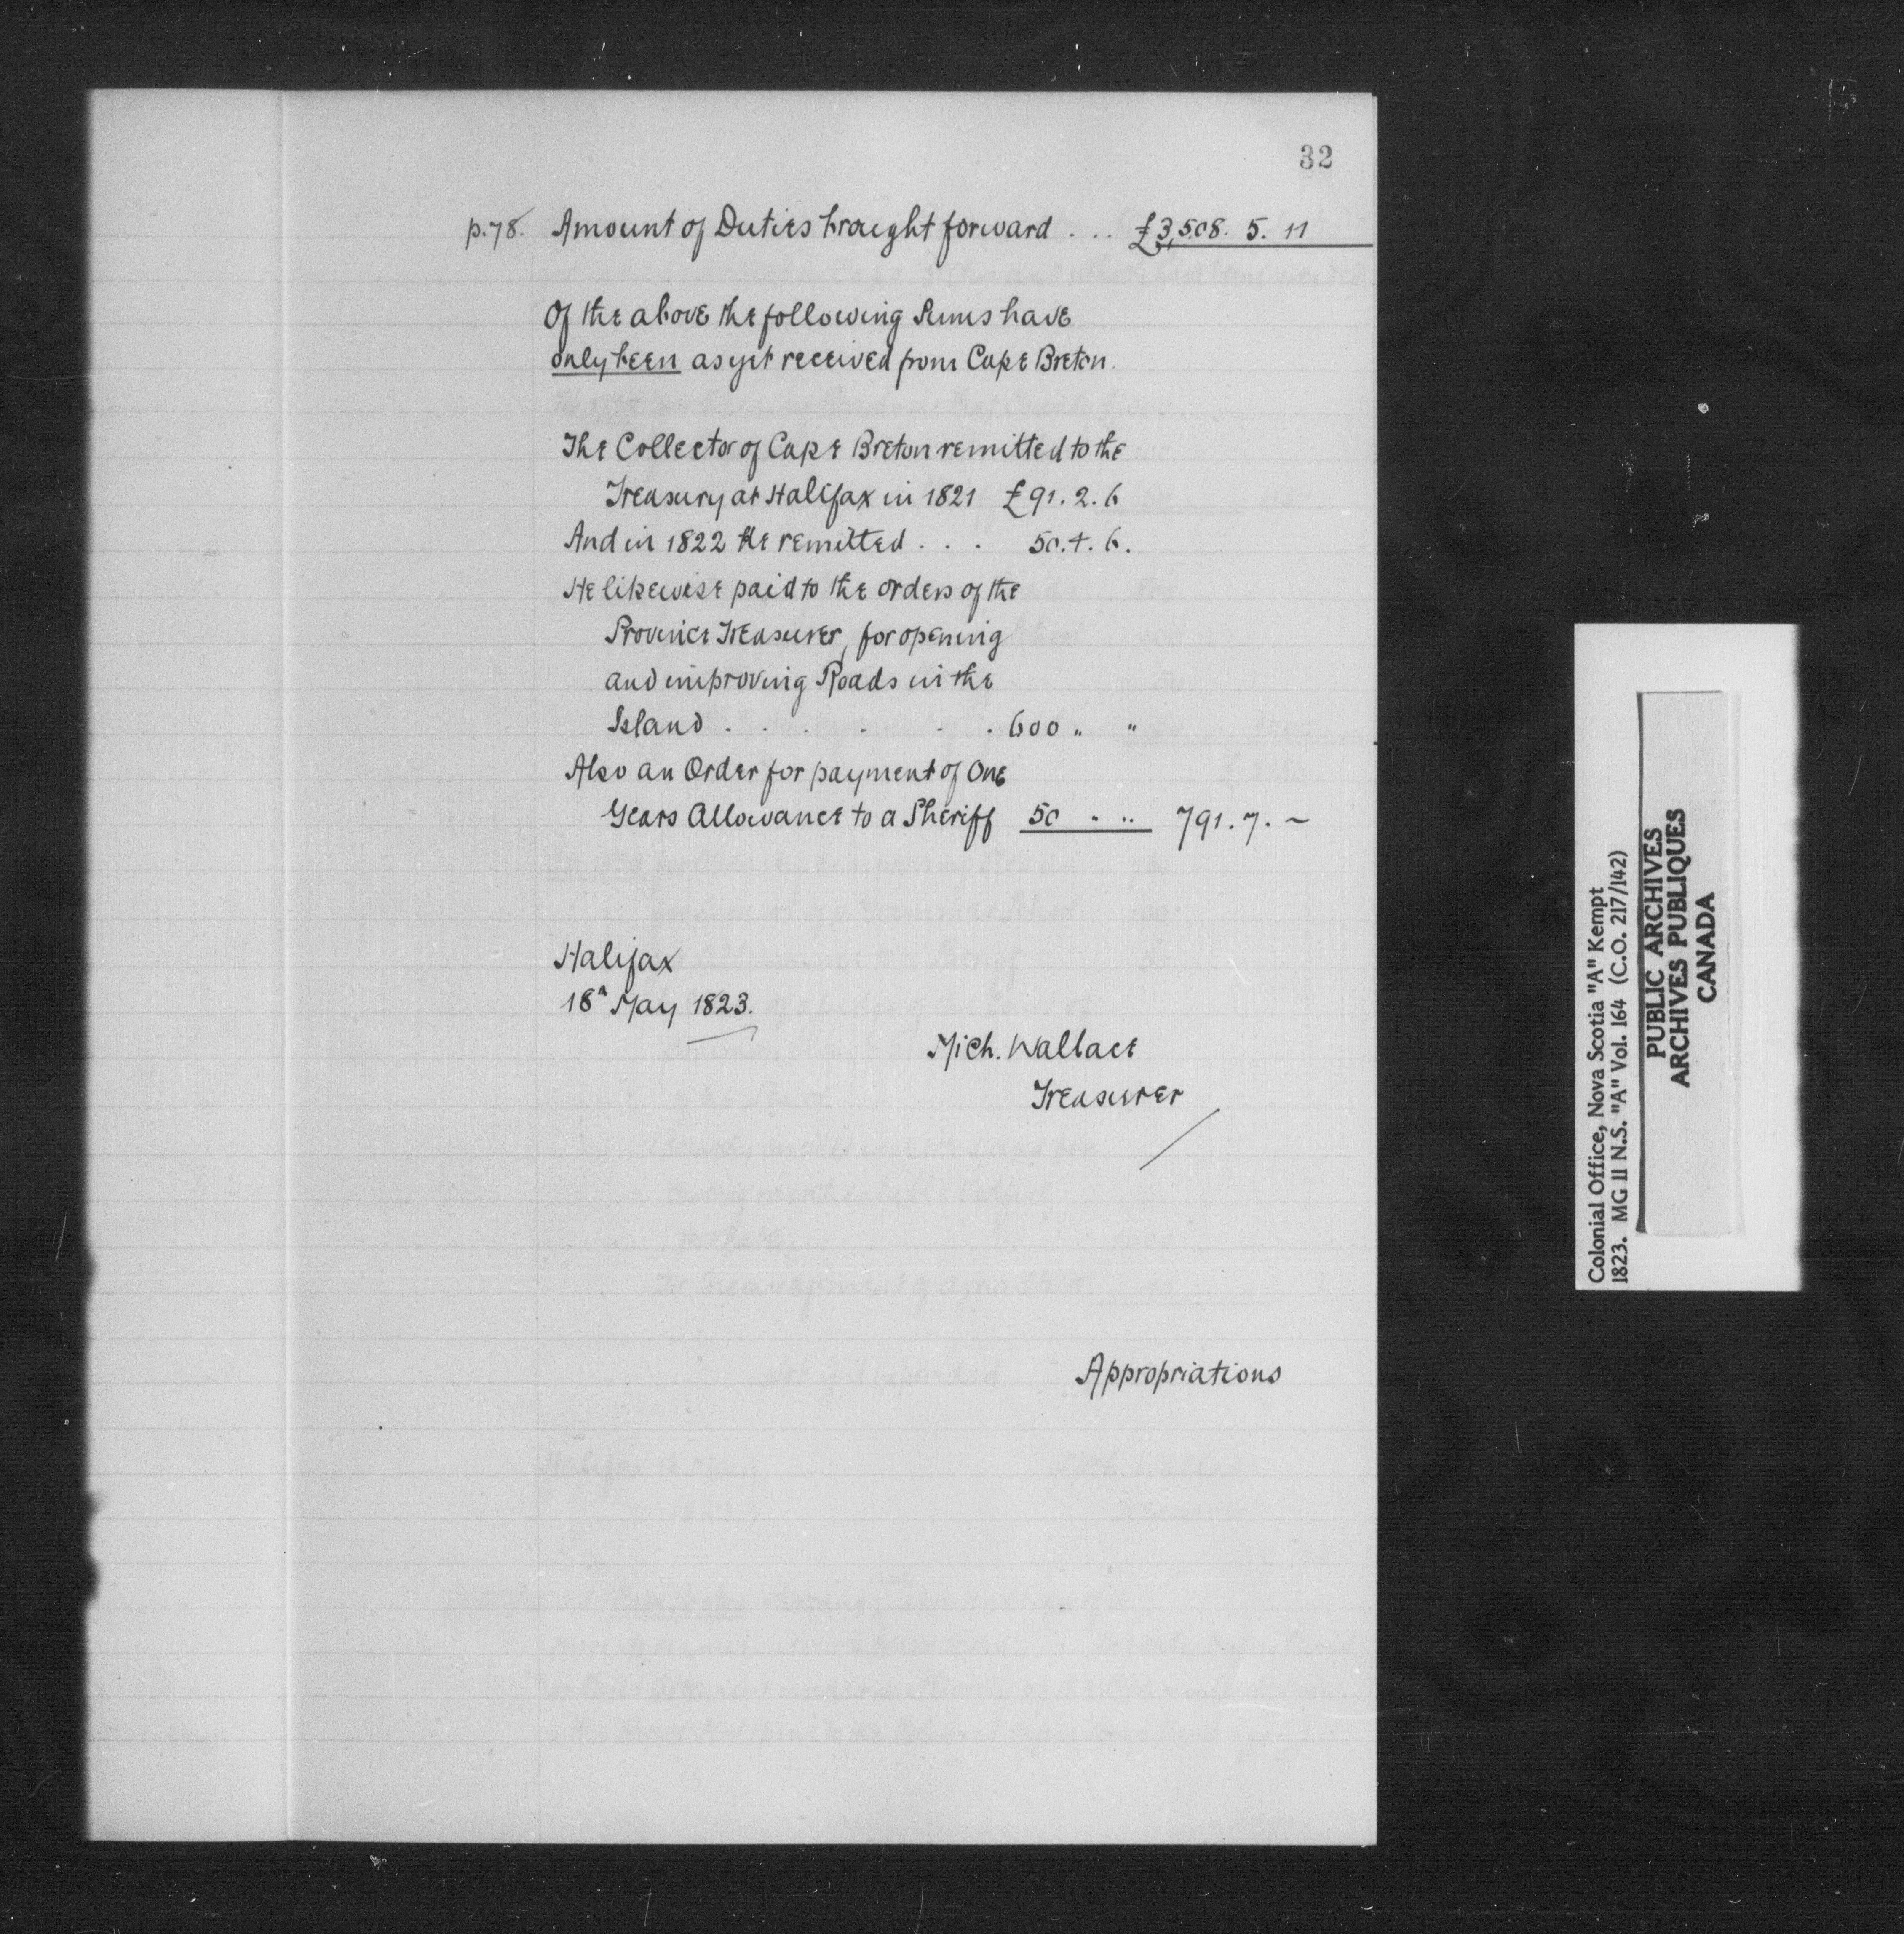 32
p.78. Amount of Duties brought forward . . . £3,508. 5. 11
Of the above the following Sums have
only been as yet received from Cape Breton.
The Collector of Cape Breton remitted to the
Treasury at Halifax in 1821 £91. 2. 6
And in 1822 He remitted . . . 50. 4. 6.
He likewise paid to the orders of the
Province Treasurer, for opening
and improving Roads in the
Island . . . . . . 600 " "
Also an Order for payment of One
Years Allowance to a Sheriff 50 " " 791. 7. ~
Halifax
18th May 1823.
Mich. Wallace
Treasurer
Appropriations
Colonial Office, Nova Scotia "A" Kempt
1823. MG 11 N.S. "A" Vol. 164 (C.O. 217/142)
PUBLIC ARCHIVES
ARCHIVES PUBLIQUES
CANADA